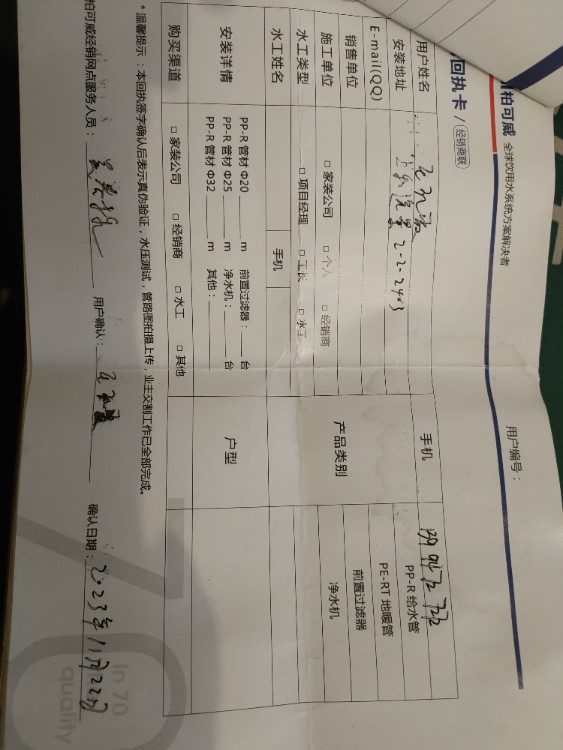 柏可威 全球饮用水系统方案解决者
回执卡 / 经销商联
用户编号：
用户姓名
手机
安装地址 2-2-2403
E-mail(QQ)
产品类别
PP-R 给水管
PE-RT 地暖管
前置过滤器
净水机
销售单位
施工单位 □ 家装公司 □ 个人 □ 经销商
水工类型 □ 项目经理 □ 工长 □ 水工
水工姓名 手机
安装详情
PP-R 管材 Φ20 m 前置过滤器： 台
PP-R 管材 Φ25 m 净水机： 台
PP-R 管材 Φ32 m 其他：
户型
购买渠道 □ 家装公司 □ 经销商 □ 水工 □ 其他
* 温馨提示：本回执签字确认后表示真伪验证，水压测试，管路图拍摄上传，业主交割工作已全部完成。
柏可威经销网点服务人员： 用户确认： 确认日期：2023年11月22日
In 70
quality